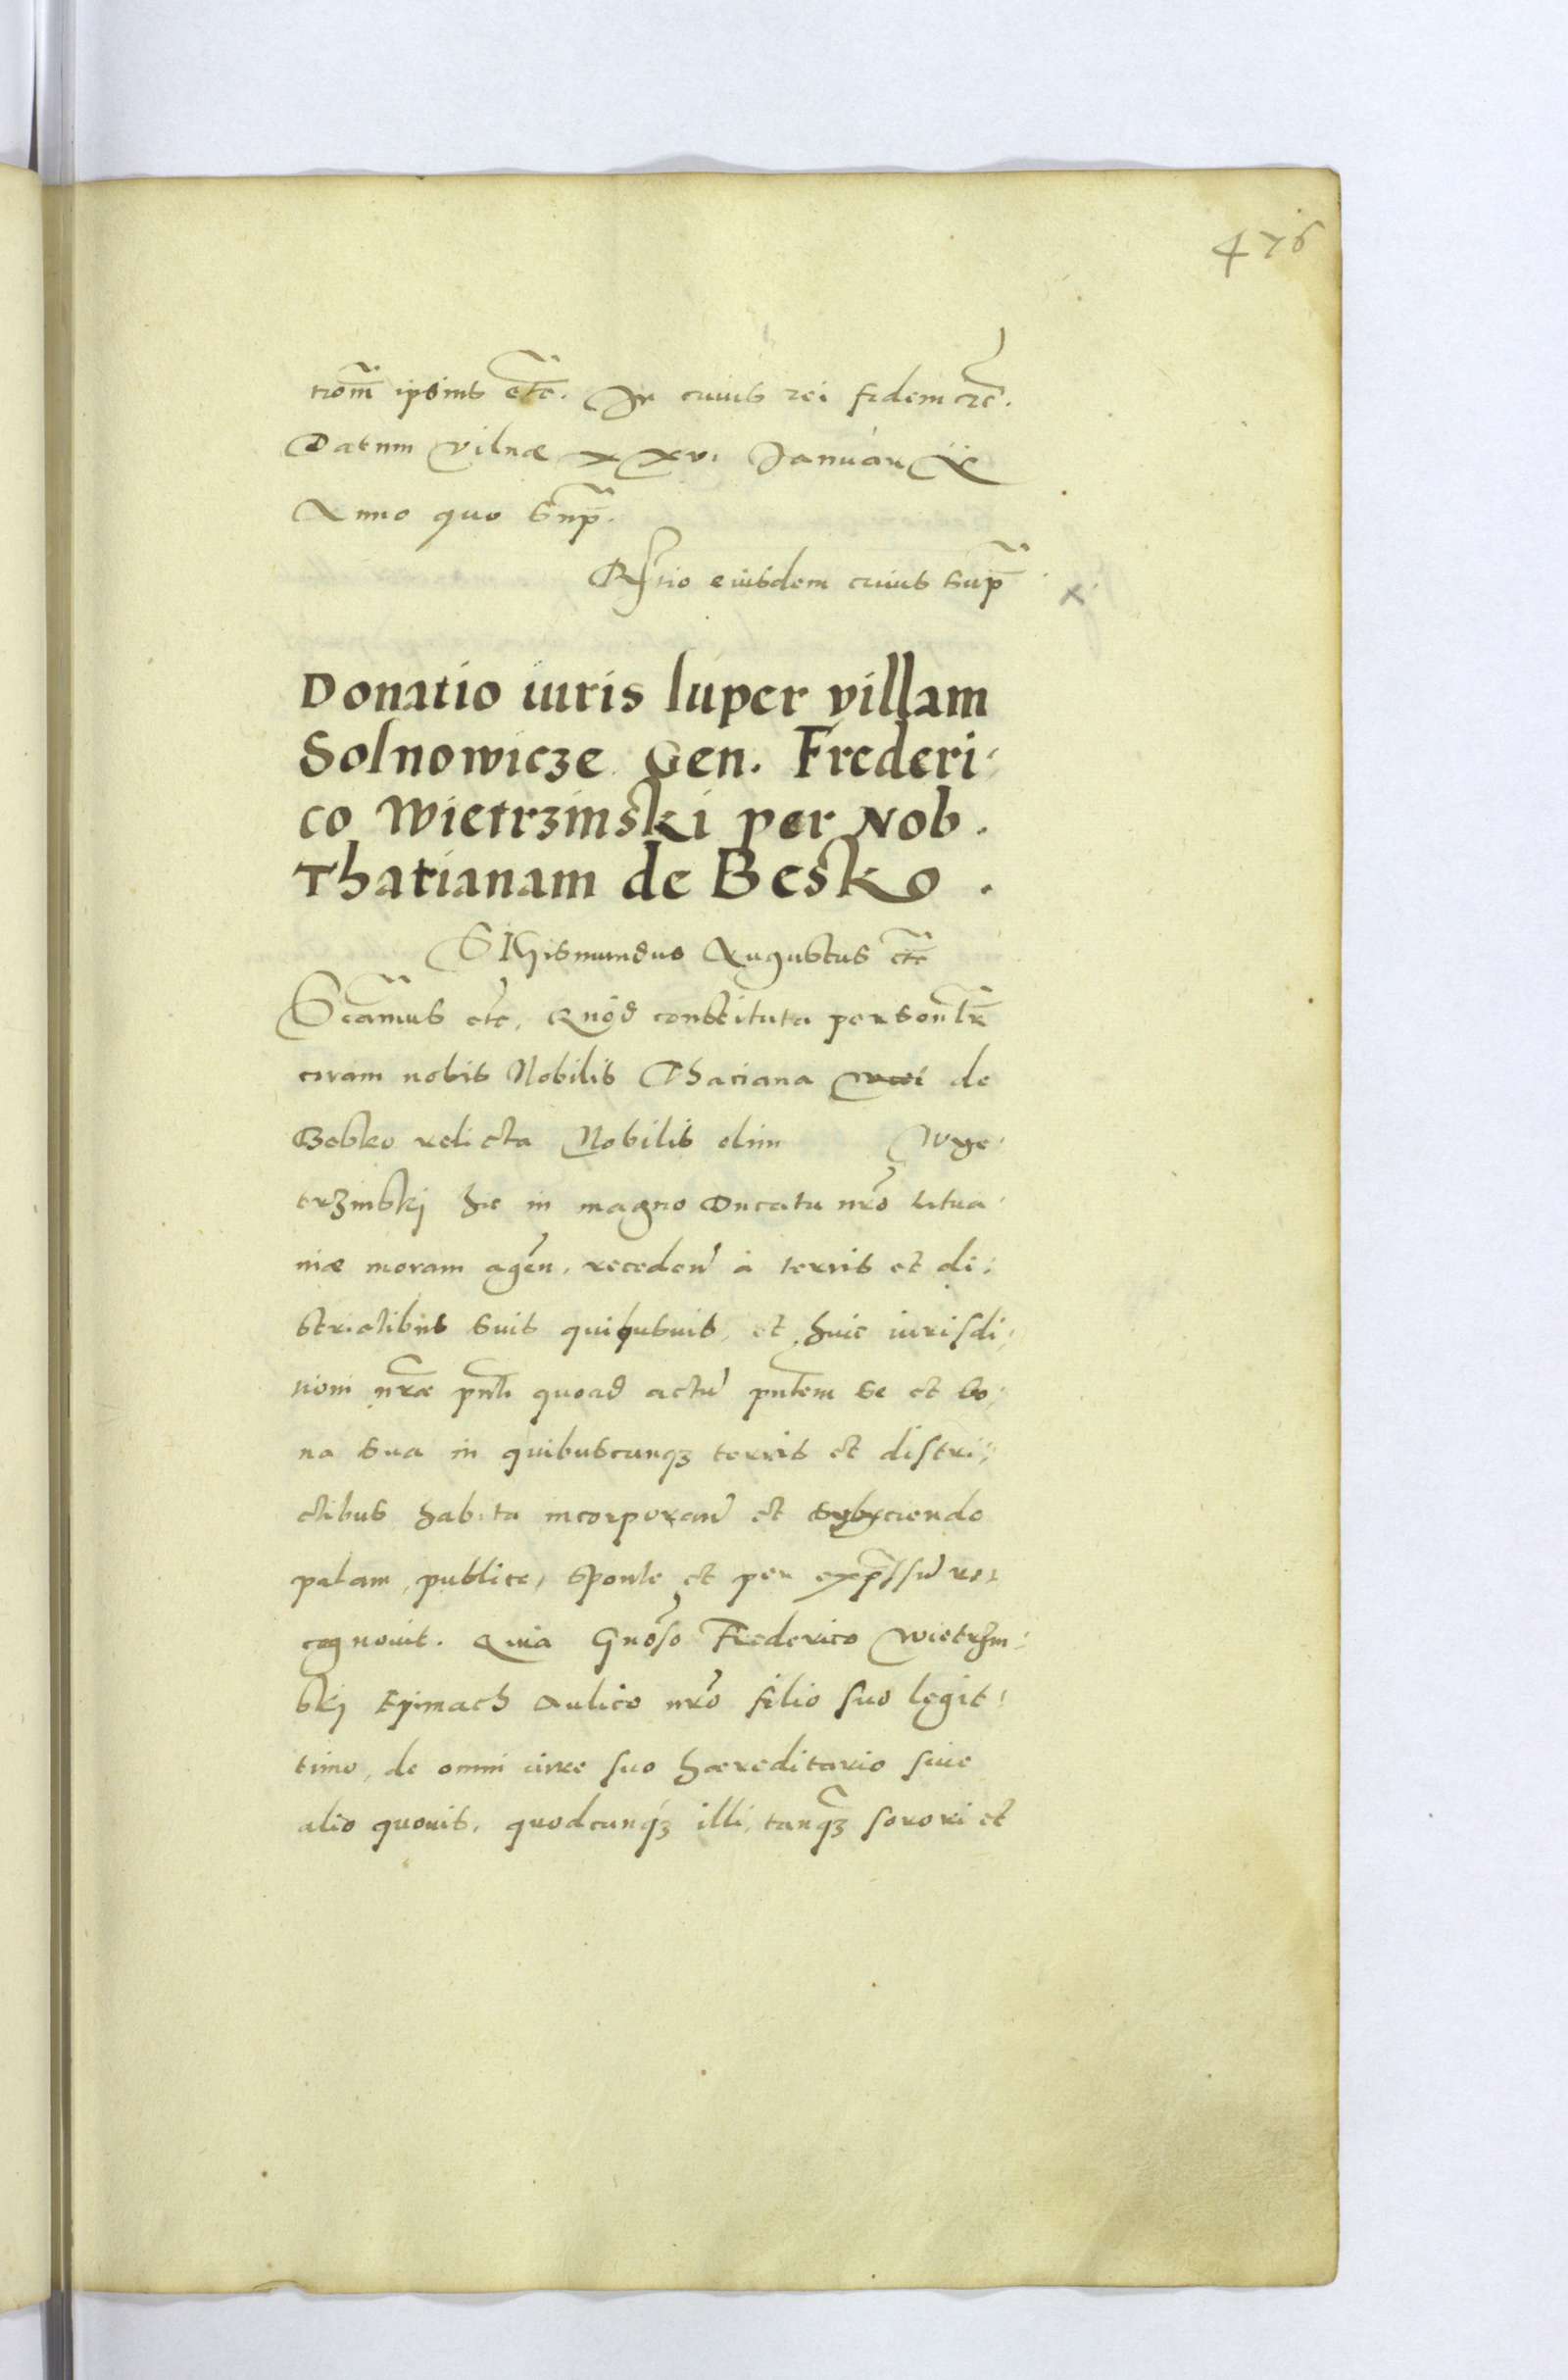 476
tiom̃ ipsius etc̃. In cuius rei fidem etc̃.
Datum Vilnæ XXVI Januarij
Anno quo Sup̃.
Rełtio eiusdem cuius sup̃
Donatio iuris super villam
Solnowicze Gen. Frederi-
co Wietrzinski per Nob.
Thatianam de Besko.
SIGismundus Augustus etc̃
Sc̃amus etc. Quod constituta personlr̃
coram nobis Nobilis Thatiana de
Besko relicta Nobilis olim Wye-
trzinskj hic in magno Ducatu nrõ Litua-
niæ moram agen̄. receden̄ à terris et di-
strictibus suis quibusuis, et huic iurisdi-
tioni nr̃æ pñti quoad actū pñtem se et bo-
na sua in quibuscunqȝ terris et distri-
ctibus habita incorporan̄ et subyciendo
palam, publice, sponte et per exp̃ssū re-
cognouit. Quia Gnõso Frederico Wietrzin-
skj Aulico nrõ filio suo legit-
timo, de omni iure suo hæreditario siue
alio quouis, quodcunqȝ illi, tanqȝ̃ sorori et